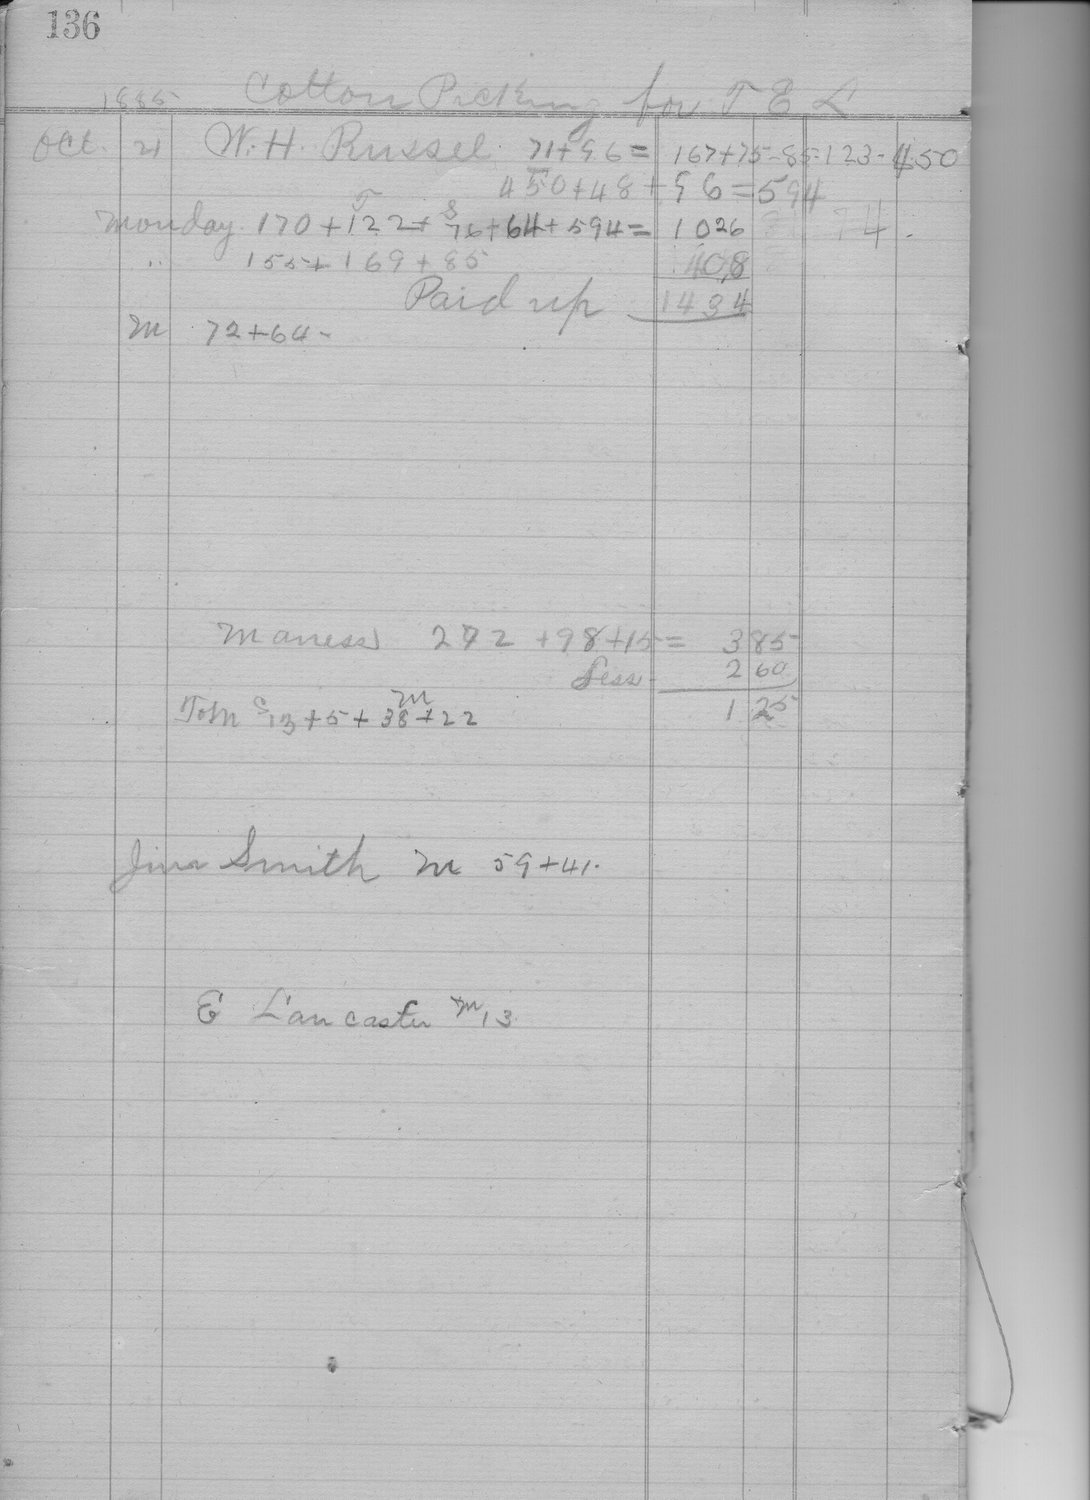 136
1885 Cotton Picking for T E L
Oct. 21 W. H. Russel. 71+96= 167+75-85-123-450
450+48+96=594
Monday 170+122+76+64+594= 1026 74.
T S
" 155+169+85 408
Paid up 1434
M 72+64-
Maness 272+98+15= 385
Less 260
M
Tom S 13+5+38+22 125
Jim Smith M 59+41.
E Lancaster M 13